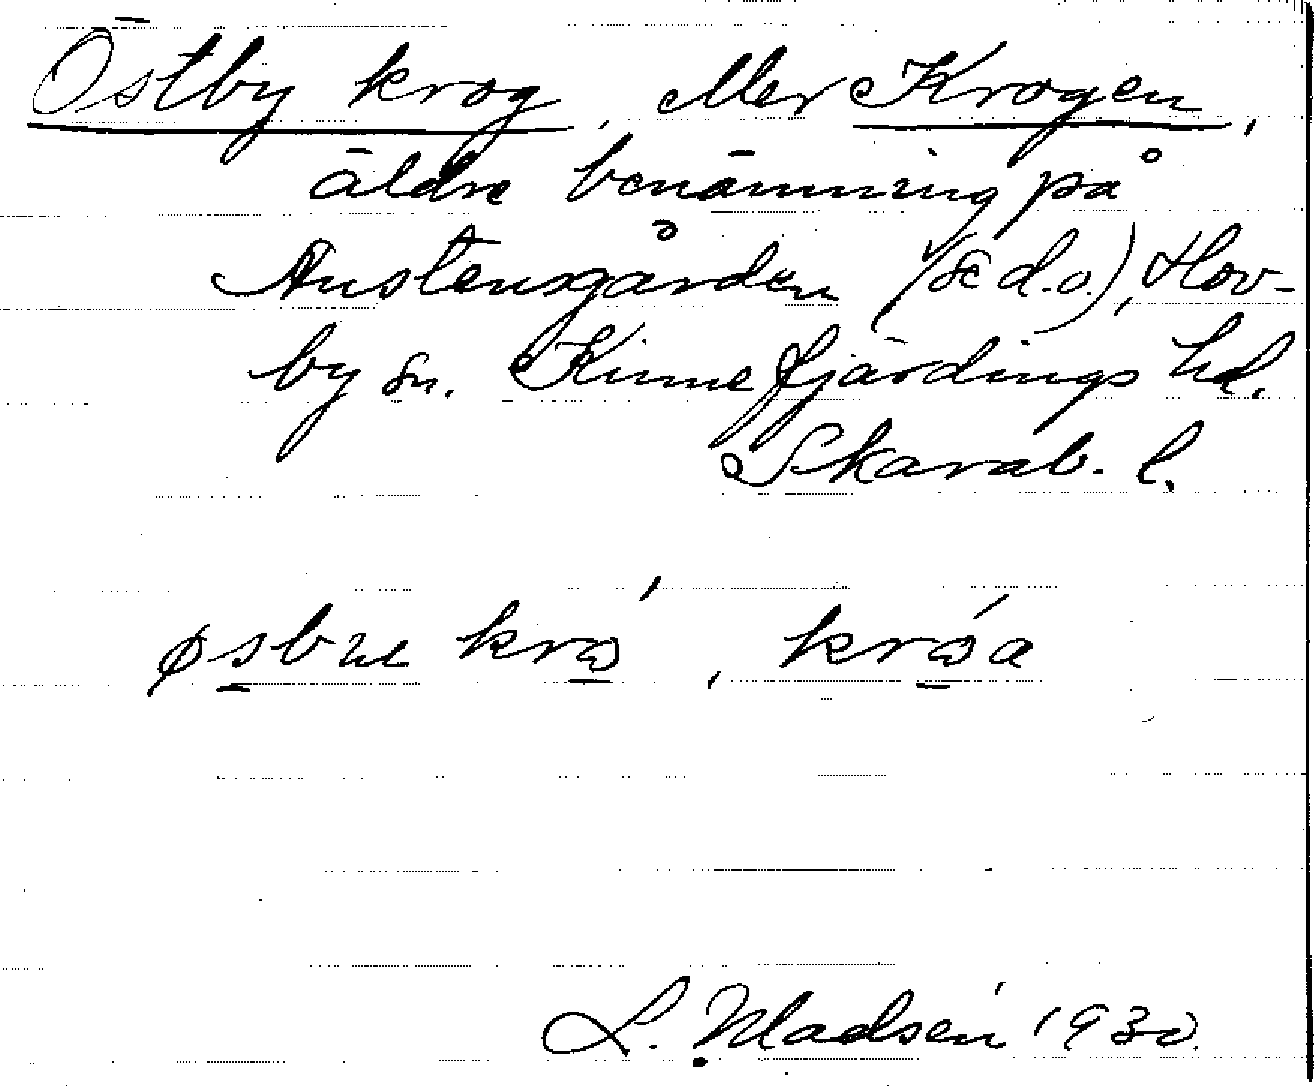 Östby krog, eller Krogen,
äldre benämning på
Austensgården (se d.o.), Hov-
by sn. Kinnefjärdings hd.
Skarab. l.
krɷ́a
L. Madsén 1930.